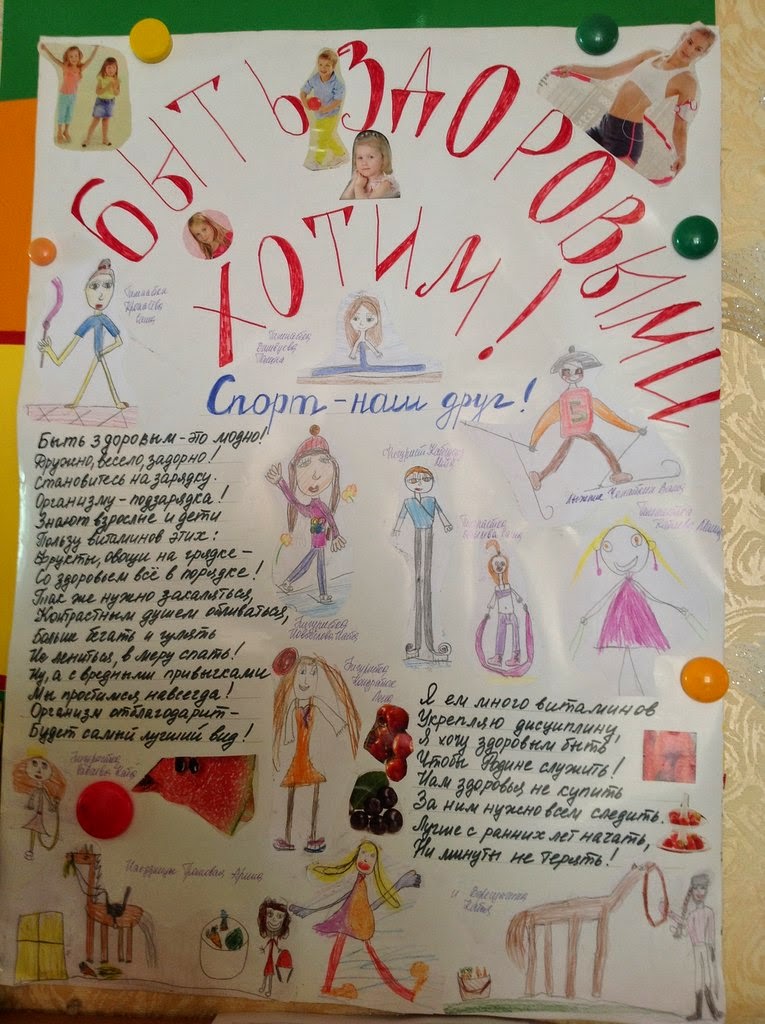 БЫТЬ ЗДОРОВЫМИ
ХОТИМ!
Гимнастка
Саша
Гимнастка
Спорт - наш друг!
Б
Быть здоровым - это модно!
Дружно, весело, задорно!
Становитесь на зарядку.
Организму - подзарядка!
Знают взрослые и дети
Пользу витаминов этих:
Фрукты, овощи на грядке -
Со здоровьем всё в порядке!
Так же нужно закаляться,
Контрастным душем обливаться,
Больше бегать и гулять
Не лениться, в меру спать!
Ну, а с вредными привыками
Мы простимся навсегда!
Организм отблагодарит -
Будет самый лучший вид!
Фигурист
Лыжник
Ваня
Гимнастка
Гимнастка
Фигуристка
Катя
Фигуристка
Я ем много витаминов
Укрепляю дисциплину
Я хочу здоровым быть
Чтобы Родине служить!
Нам здоровья не купить
За ним нужно всем следить.
Лучше с ранних лет начать,
Ни минуты не терять!
Фигуристка
Катя
Наездницы
Арина
и
Катя